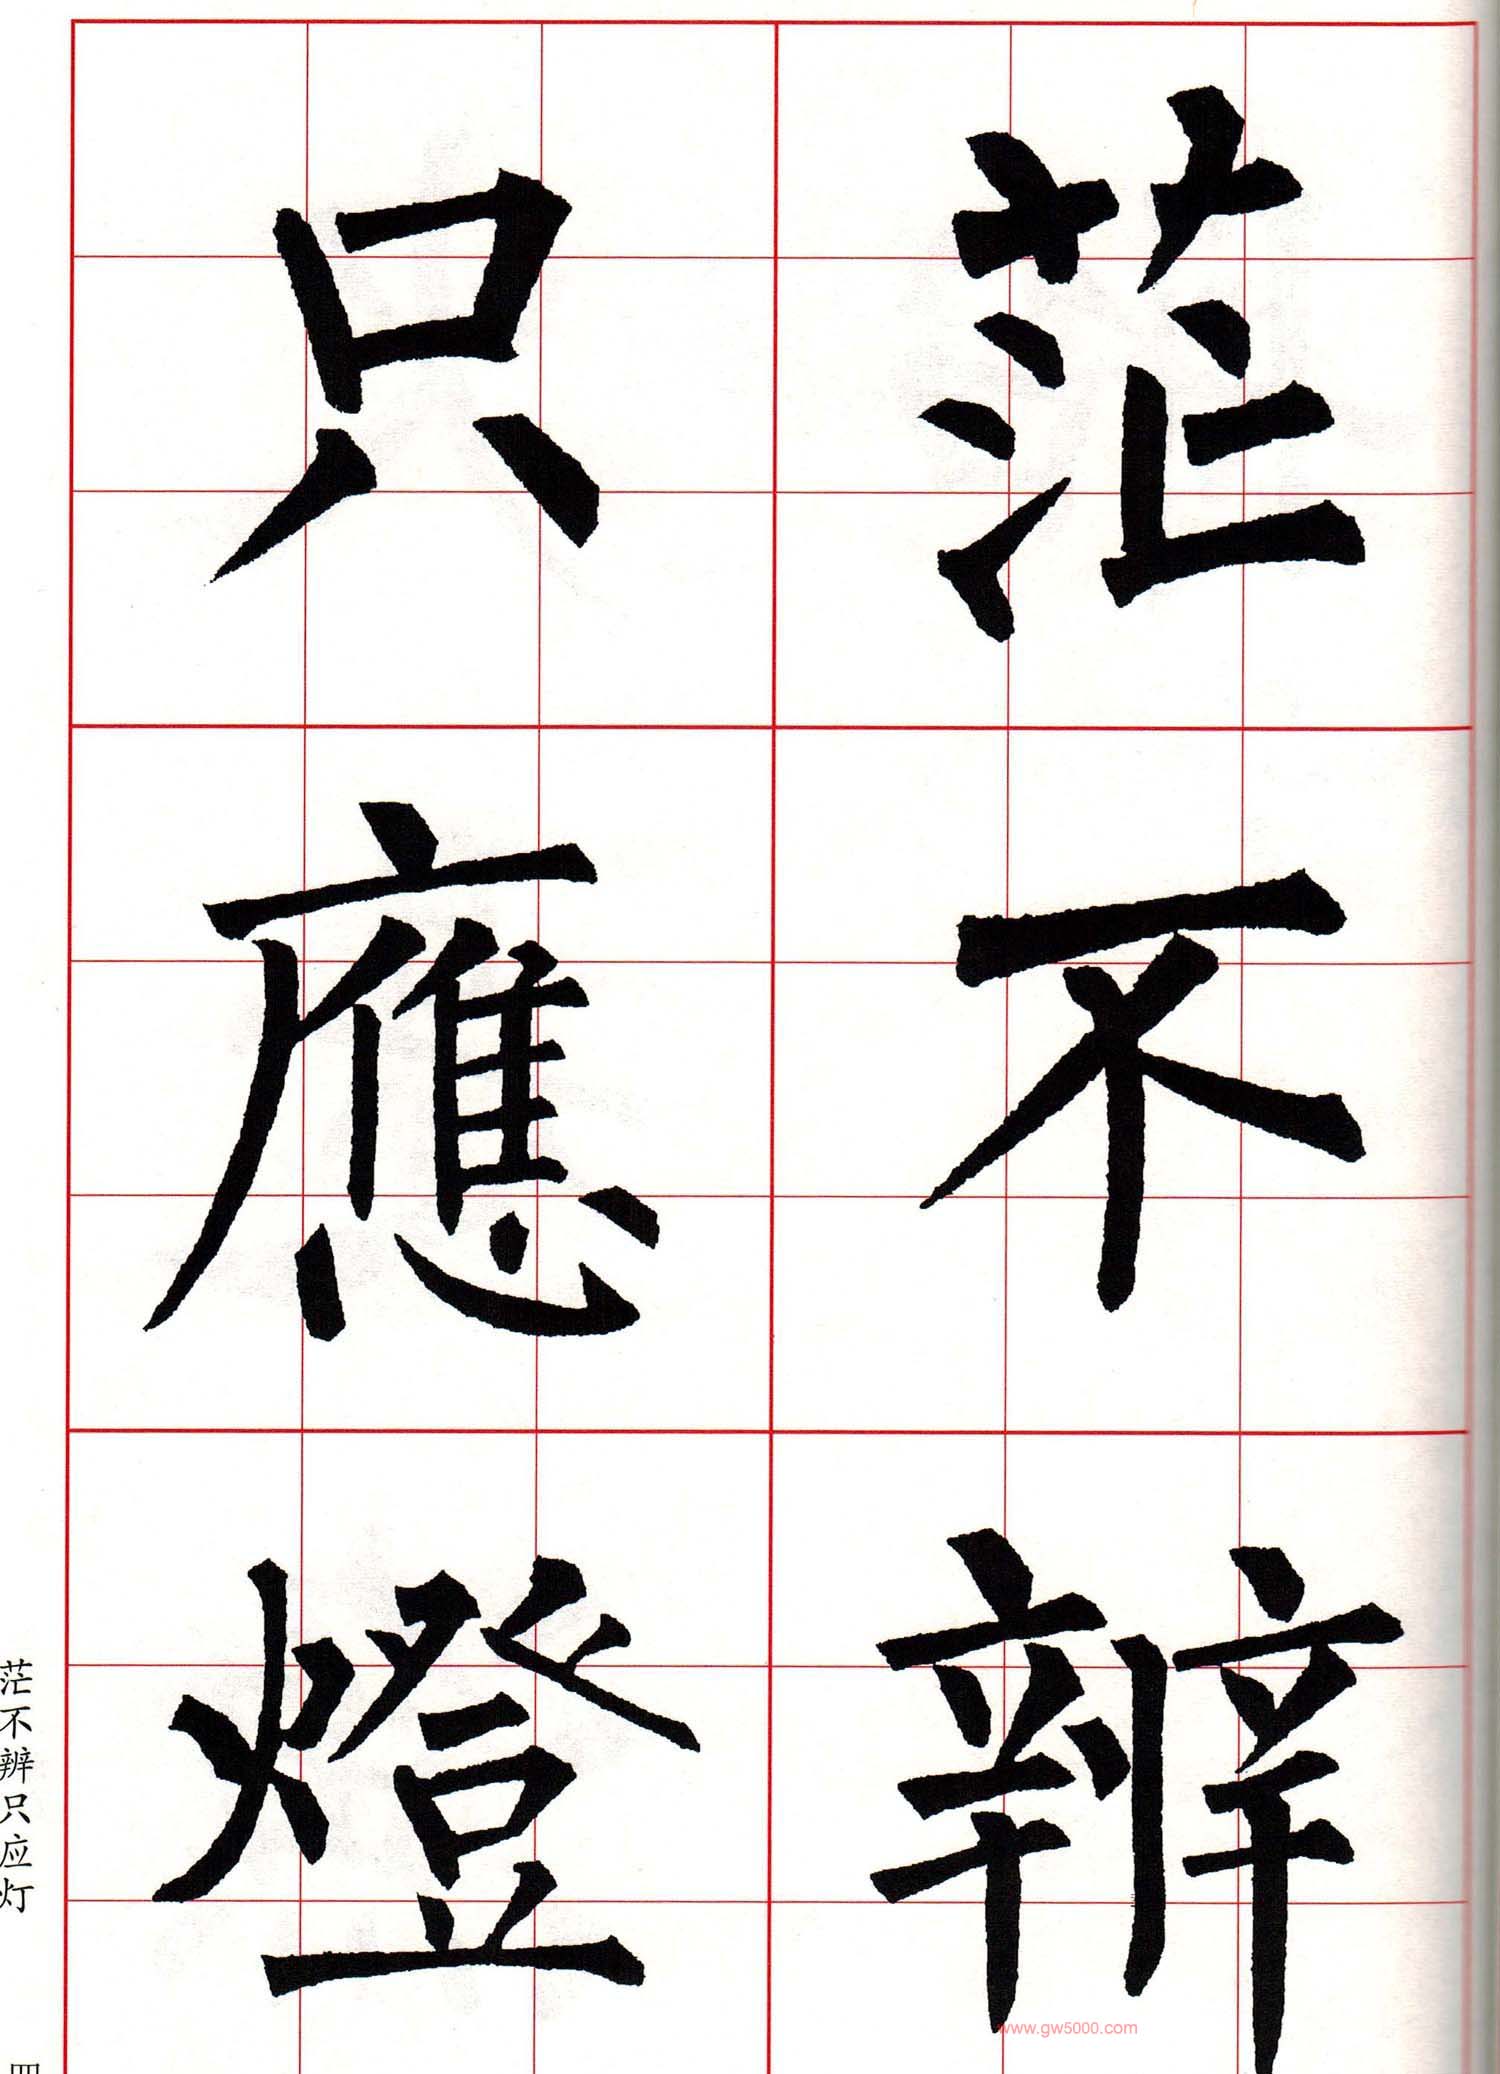 茫不辨
只應燈
茫不辨只应灯
四
www.gw5000.com